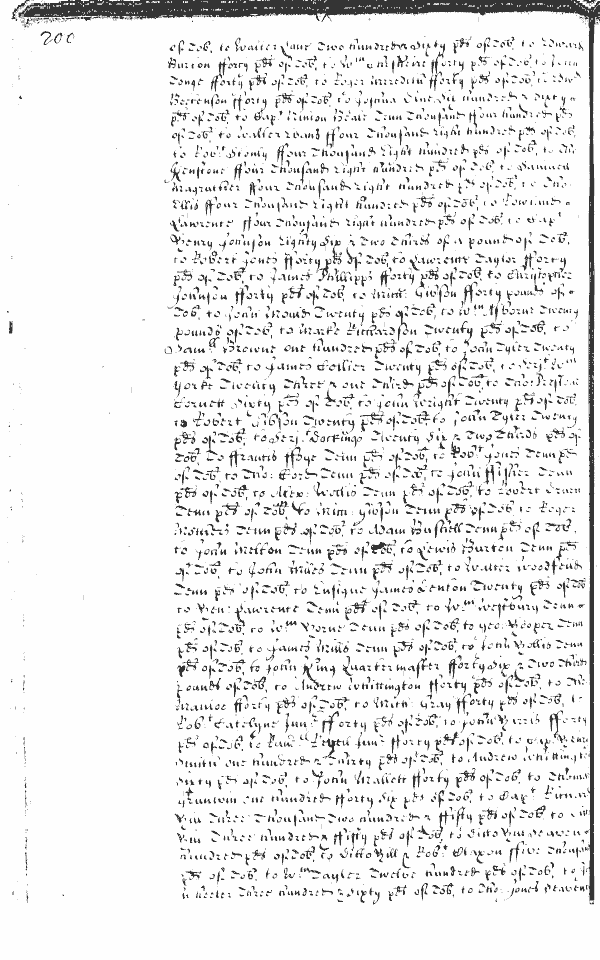 200
of Tob, to Walter Lane Two hundred & Sixty pds of Tob, to Edward
Burton fforty pds of Tob, to Wm fforty pds of Tob, to
Tonge fforty pds of Tob, to Roger Meredith fforty pds of Tob, to
fforty pds of Tob, to Joshua Six hundred & Sixty
pds of Tob, to Capt Ninion Beale Tenn Thousand ffour hundred pds
of Tob, to Walter Evans ffour Thousand Eight hundred pds of Tob,
to Robt ffour Thousand Eight hundred pds of Tob, to Tho
ffour Thousand Eight hundred pds of Tob, to Samuell
Magruther ffour Thousand Eight hundred pds of Tob, to Tho
Ellis ffour Thousand Eight hundred pds of Tob, to Rowland
Lawrence ffour Thousand Eight hundred pds of Tob, to Capt
Henry Johnson Eighty Six & Two Thirds of a pound of Tob,
to Robert Jones fforty pds of Tob, to Lawrence Taylor fforty
pds of Tob, to James Phillipps fforty pds of Tob, to Christopher
Johnson fforty pds of Tob, to Mich: Gibson fforty pounds of
Tob, to John Twenty pds of Tob, to Wm Osborne Twenty
pounds of Tob, to Marke Richardson Twenty pds of Tob, to
Samll Browne one hundred pds of Tob, to John Tyler Twenty
pds of Tob, to James Collier Twenty pds of Tob, to Serjt Wm
Yorke Twenty Three & one Third pds of Tob, to Tho:
Cornett Sixty pds of Tob, to John Wright Twenty pds of Tob,
to Robert Gibson Twenty pds of Tob, to John Tyler Twenty
pds of Tob, to Serjt Twenty Six & Two Thirds pds of
Tob, To ffrancis ffrye Tenn pds of Tob, to Robt Jones Tenn pds
of Tob, to Tho: Tenn pds of Tob, to John ffisher Tenn
pds of Tob, to Alex: Wellis Tenn pds of Tob, to Robert
Tenn pds of Tob, to Mich: Gibson Tenn pds of Tob, to Roger
Mathers Tenn pds of Tob, to Adam Tenn pds of Tob,
to John Melton Tenn pds of Tob, to Lewis Burton Tenn pds
of Tob, to John Miles Tenn pds of Tob, to Walter
Tenn pds of Tob, to Ensigne James Twenty pds of Tob
to Ben: Lawrence Tenn pds of Tob, to Wm Westbury Tenn
pds of Tob, to Wm Tenn pds of Tob, to Geo: Hooper Tenn
pds of Tob, to James Mills Tenn pds of Tob, to John Tenn
pds of Tob, to John King Quartermaster fforty Six & Two Thirds
pounds of Tob, to Andrew Whittington fforty pds of Tob, to
fforty pds of Tob, to Mich: Gray fforty pds of Tob, to
Robt Junr fforty pds of Tob, to John fforty
pds of Tob, to Junr fforty pds of Tob, to Capt Henry
Smith one hundred & Thirty pds of Tob, to Andrew Whittington
Sixty pds of Tob, to John Mallett fforty pds of Tob, to Thomas
one hundred fforty Six pds of Tob, to Capt Richard
Hill Three Thousand Two hundred & ffifty pds of Tob, to
Hill Three hundred & ffifty pds of Tob, to Ditto Hill
hundred pds of Tob, to Ditto Hill & Robt ffive Thousand
pds of Tob, to Wm Taylor Twelve hundred pds of Tob, to
Three hundred & Sixty pds of Tob, to Tho: Jones